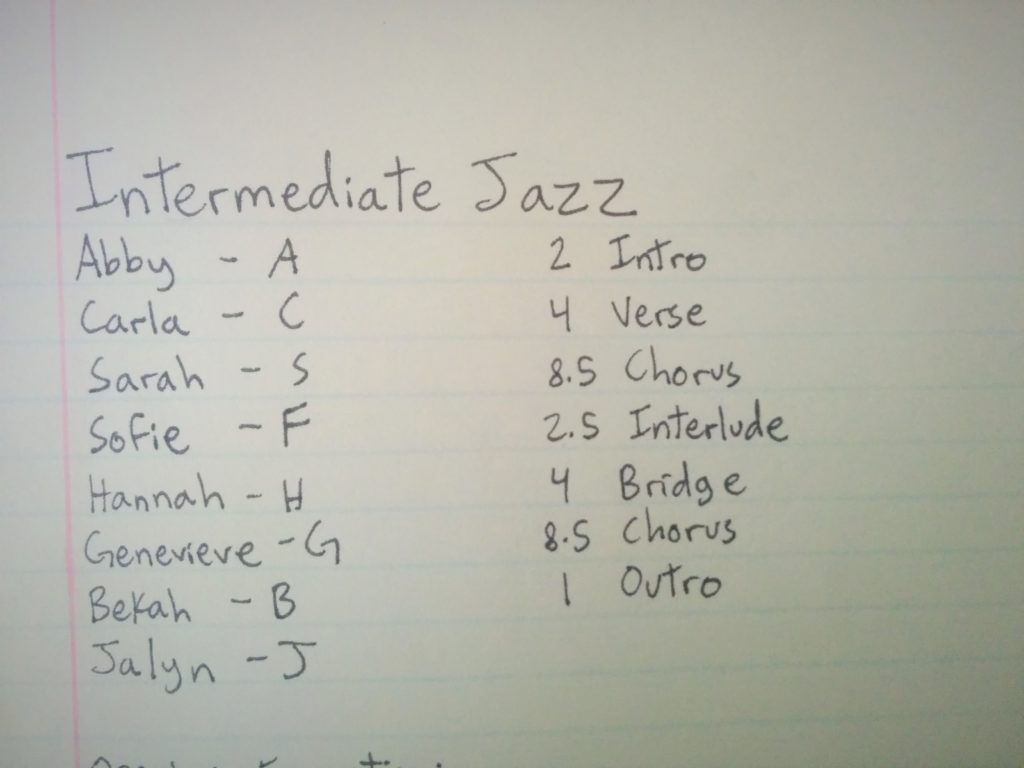 Intermediate Jazz
Abby - A
Carla - C
Sarah - S
Sofie - F
Hannah - H
Genevieve - G
Bekah - B
Jalyn - J
2 Intro
4 Verse
8.5 Chorus
2.5 Interlude
4 Bridge
8.5 Chorus
1 Outro